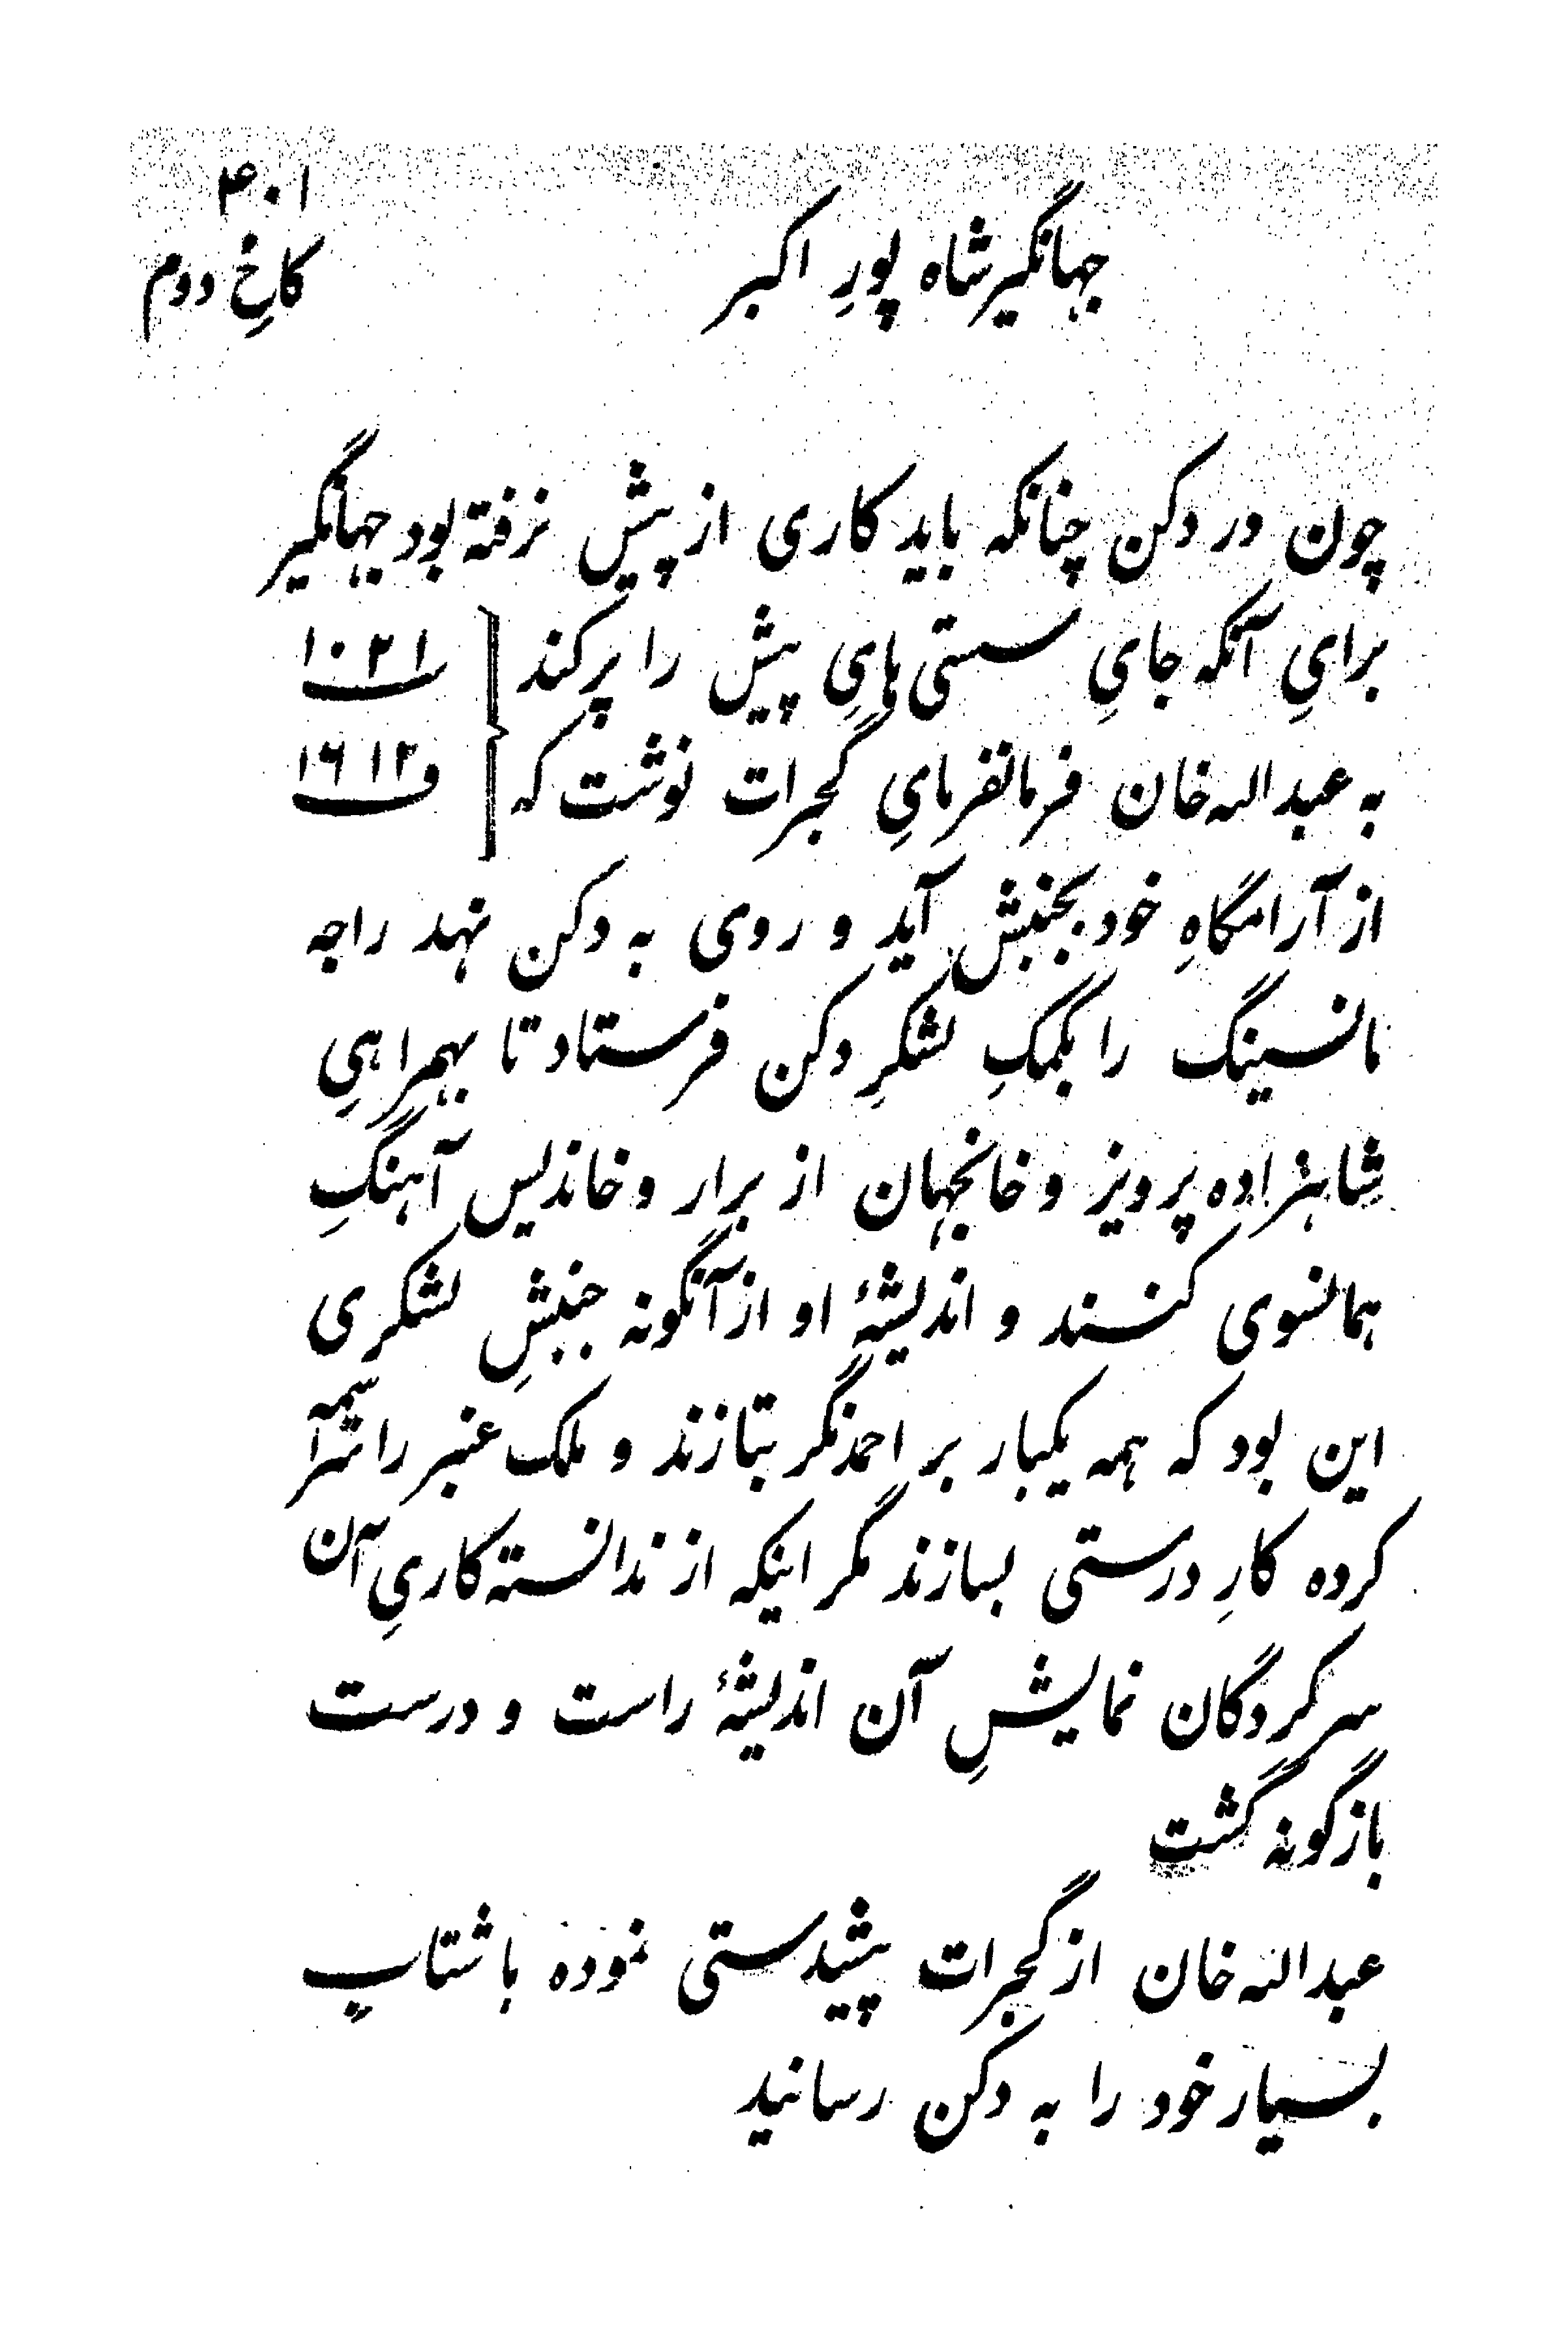 ۴۰۱
جهانگیر شاه پورِ اکبر
کاخِ دوم
چون در دکن چنانکه باید کاری از پیش نرفته بود جهانگیر
برایِ آنکه جایِ سستی‌هایِ پیش را پر کند ر۱۰۲۱
به عبدالله خان فرمانفرمایِ گجرات نوشت که ف۱۶۱۲
از آرامگاهِ خود بجنبش آید و روی به دکن نهد راجه
مانسینگ را بکمکِ لشکرِ دکن فرستاد تا بهمراهیِ
شاهزاده پرویز و خانجهان از برار و خاندیس آهنگِ
همانسوی کنند و اندیشهٔ او از آنگونه جنبشِ لشکری
این بود که همه یکبار بر احمدنگر بتازند و ملک عنبر را سراسیمه
کرده کارِ درستی بسازند مگر اینکه از ندانسته کاریِ آن
سرکردگان نمایشِ آن اندیشهٔ راست و درست
بازگونه گشت
عبدالله خان از گجرات پیشدستی نموده با شتابِ
بسیار خود را به دکن رسانید